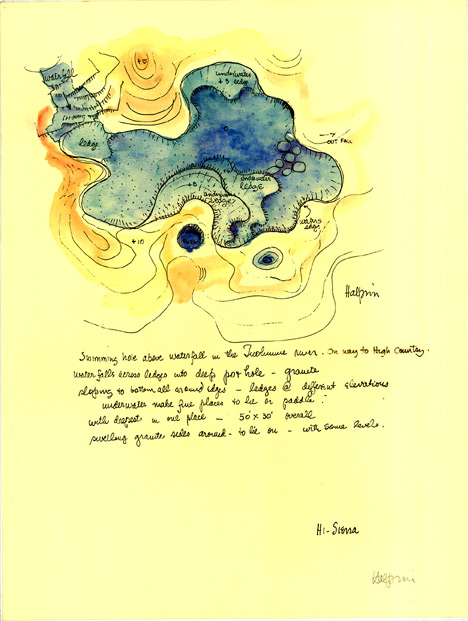 waterfall
+15
underwater
+3 ledge
ledge
OUT FALL
underwater
ledge
+5
underwater
ledge
+10
Halprin
Swimming hole above waterfall in the Tuolumne river. On way to High Country.
water falls across ledges into deep pot hole - granite
sloping to bottom all around edges - ledges @ different elevations
underwater make fine places to lie or paddle!
with deepest in one place - 50' x 30' overall
swelling granite sides around - to lie on - with some levels.
Hi-Sierra
Halprin